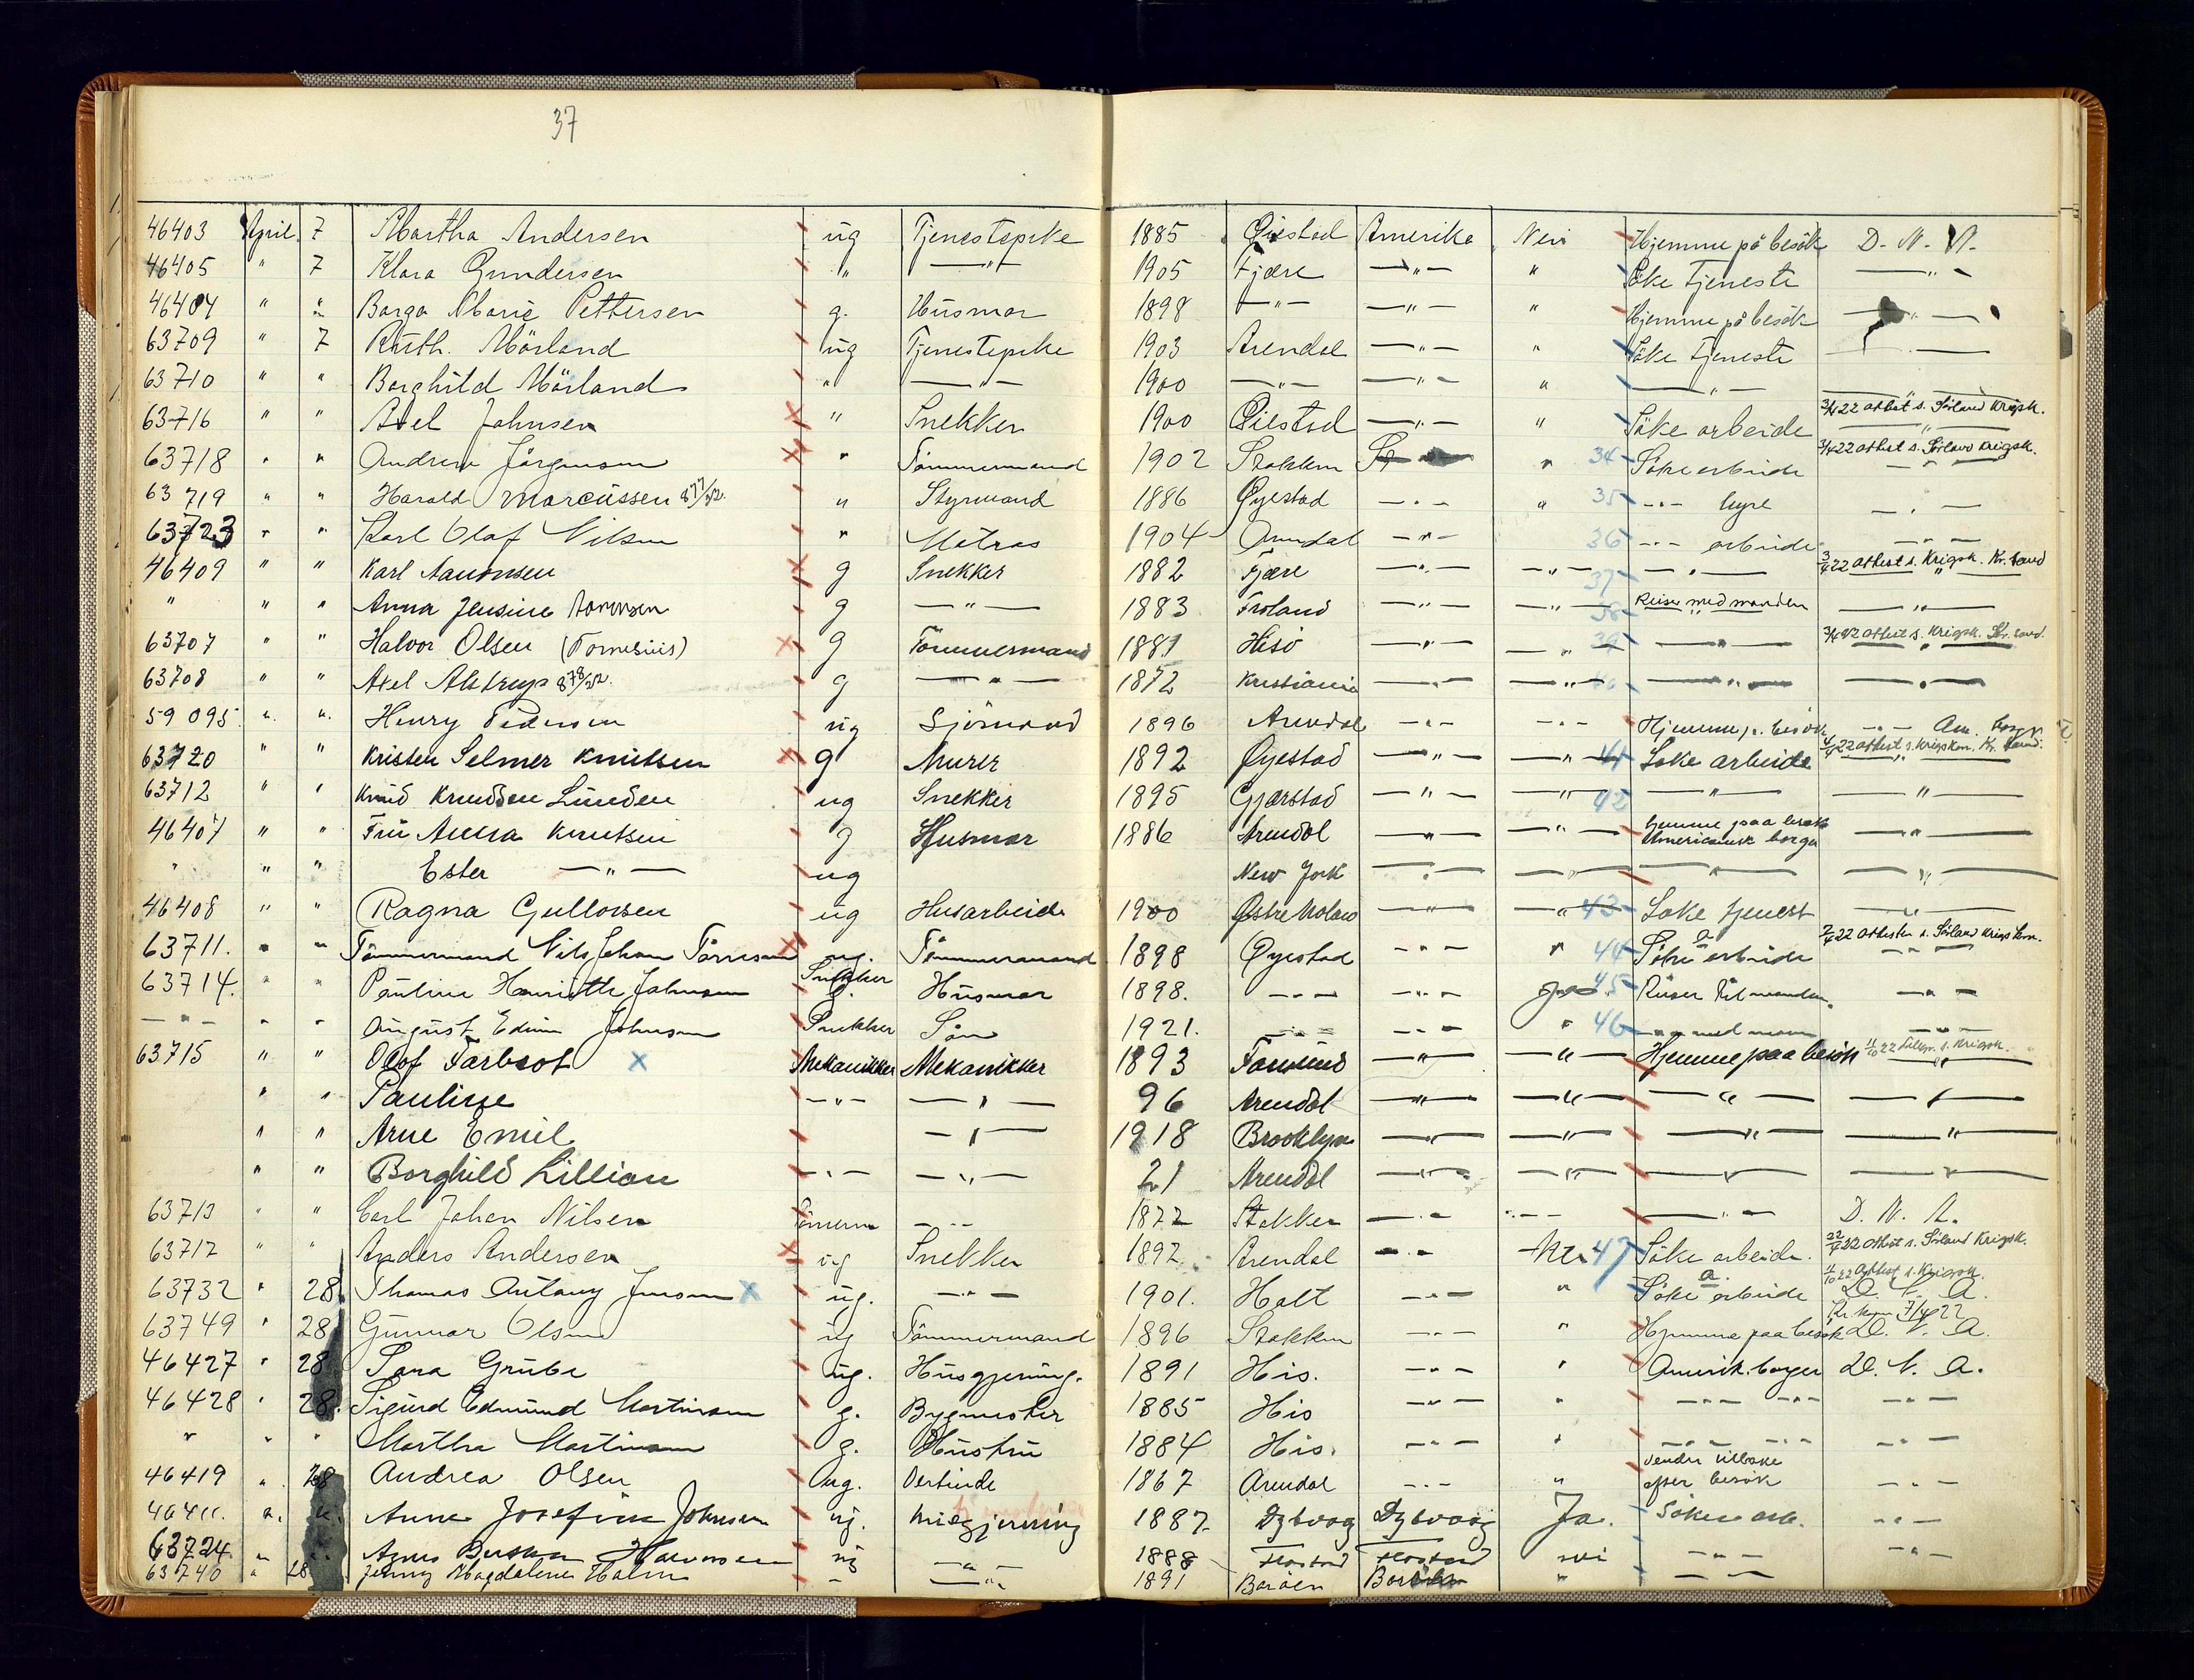 37
46403 April 7 Martha Andersen ug Tjenestepike 1885 Øiestad Amerika Nei Hjemme på besök D. N. A.
46405 " 7 Klara Gundersen " —"— 1905 Fjære —"— " Söke tjeneste —"—
46404 " " Borga Marie Pettersen g. Husmor 1898 —"— —"— " Hjemme på besök —"—
63709 " 7 Ruth. Mörland ug Tjenestepike 1903 Arendal —"— " Söke tjeneste —
63710 " " Borghild Mörland " —"— 1900 —"— —"— " —"—
63716 " " Axel Johnsen " Snekker 1900 Øiestad —"— " Söke arbeide 3/4 22 attest s. Sörland Krigsk. —"—
63718 " " Andrew Jörgensen " Tömmermand 1902 Stokken " 34 Söke arbeide 3/4 22 attest s. Sörland Krigsk. —"—
63719 " " Harald Marcussen " Styrmand 1886 Öyestad —"— " 35 —"— hyre —"—
63723 " " Karl Olaf Nilsen " Matros 1904 Arendal —"— 36 —"— arbeide —"—
46409 " " Karl Aanonsen g Snekker 1882 Fjære —"— —"— 37 —"— 3/4 22 attest s. Krigsk. Kr. sand —"—
" " " Anna Jensine Aanonsen g —"— 1883 Froland —"— —"— 38 Reise med manden —"—
63707 " " Halvor Olsen (Tornesius) g Tömmermand 1881 Hisö —"— —"— 39 —"— 3/4 22 attest s. Krigsk. Kr. sand. —"—
63708 " " Axel Alstrup g —"— 1872 Kristiania —"— —"— —"— —"—
59095 " " Henry Pedersen ug Sjömand 1896 Arendal —"— —"— Hjemme p. besök —"— Am. borger
63720 " " Kristen Selmer Knutsen g Murer 1892 Öyestad —"— —"— 41 Söke arbeide 4/4 22 attest s. Krigskom. Kr. sand. —"—
63712 " " Knud Knudsen Lunden ug Snekker 1895 Gjerstad —"— —"— 42 —"— —"—
46407 " " Fru Anna Knutsen g Husmor 1886 Arendal —"— —"— hjemme paa besök Americansk borger —"—
" " " Ester —"— ug New York —"— —"— —"— —"—
46408 " " Ragna Gullorsen ug Husarbeide 1900 Østre Moland —"— —"— 43 Söke tjenest —"—
63711. " " Tömmermand Nils Johan Törresen ug. Tömmermand 1898 Öyestad —"— " 44 Söke a arbeide 3/4 22 attester s. Sörland Krigs kom. —"—
63714. " " Pauline Henriette Johnsen Snekker g. Husmor 1898. —"— —"— Ja 45 Reiser til manden. —"—
—"— " " August Edwin Johnsen Snekker Sön 1921. —"— —"— " 46 —"— —"—
63715 " " Olof Farbrot X Mekanikker Mekanikker 1893 —"— —"— Hjemme paa besök 11/10 22 s. Krigsk. —"—
" " Pauline —"— —"— 96 Arendal —"— —"— —"— —"—
" " Arne Emil —"— 1918 Brooklyn —"— —"— —"— —"—
" " Borghild Lillian —"— —"— 21 Arendal —"— —"— —"— —"—
63713 " " Carl Johan Nilsen Tömerm —"— 1872 Stokken —"— —"— —"— D. N. A.
63717 " " Anders Andersen ug Snekker 1892 Arendal —"— Nei 47 Söke arbeide. 22/4 22 Attest s. Sörland Krigsk.
63732 " 28. Thomas Antony Jensen X ug. —"— 1901. Holt —"— " Söke a. arbeide 11/10 22 Attest s. Krigsk. D. N. A.
63749 " 28 Gunnar Olsen ug Tömmermand 1896 Stokken —"— " Hjemme paa besök 7/4 22 D. N. A.
46427 " 28 Sara Grube ug. Husgjerning. 1891 His. —"— " Amerik. borger D. N. A.
46428 " 28. Sigurd Edmund Martinsen g. Bygmester 1885 His —"— " —"— —"— —"—
" " " Martha Martinsen g. Hustru 1884 His. —"— " —"— —"— —"—
46419 " 28 Andrea Olsen ug. Værtinde 1867 Arendal —"— " Vender tilbake efter besök —"—
46411. " " Anne Josefine Johnsen ug. Husgjerning 1887 Dybvaag Dybvaag Ja. Söke arb. —"—
63724. " " Agnes Halvorsen ug —"— 1888 Flostad Flostad nei —"— —"—
63740 " 28 Jenny Magdalene Holm — —"— 1891 Boröen " —"—